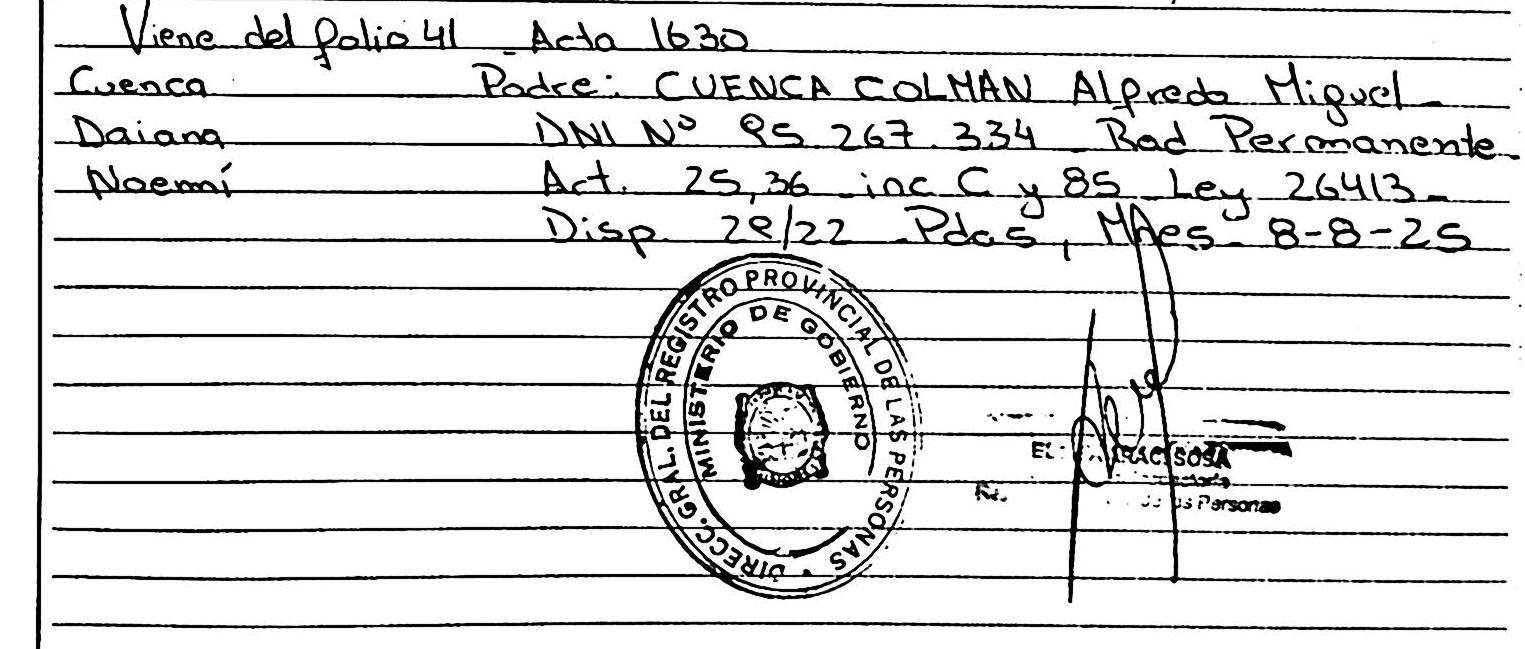 Viene del folio 41 - Acta 1630
Cuenca Padre: CUENCA COLMAN Alfredo Miguel -
Daiana DNI Nº 95.267.334 - Rad Permanente -
Noemí Act. 25,36 - inc C y 85 - Ley 26413 -
Disp. 29/22 - Pdas, - 8-8-25
DIRECC. GRAL. DEL REGISTRO PROVINCIAL DE LAS PERSONAS
MINISTERIO DE GOBIERNO
SOSA
Personas